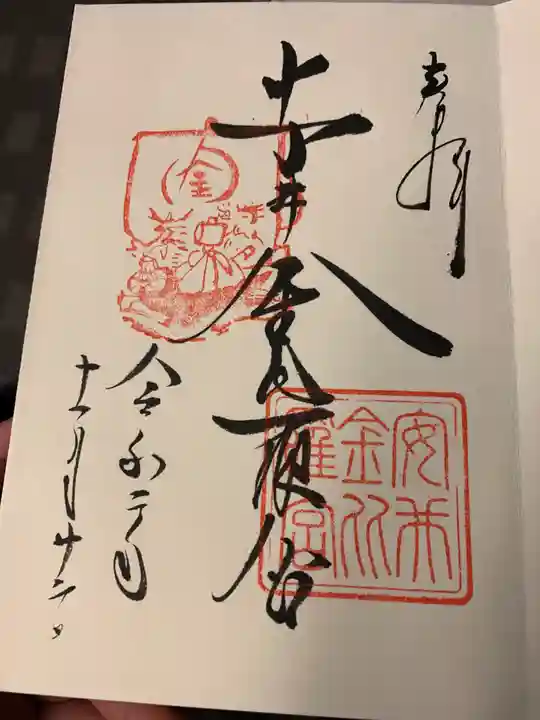 奉拝
安井金比羅宮
令和二年
十一月廿二日
安井
金比
羅宮
金